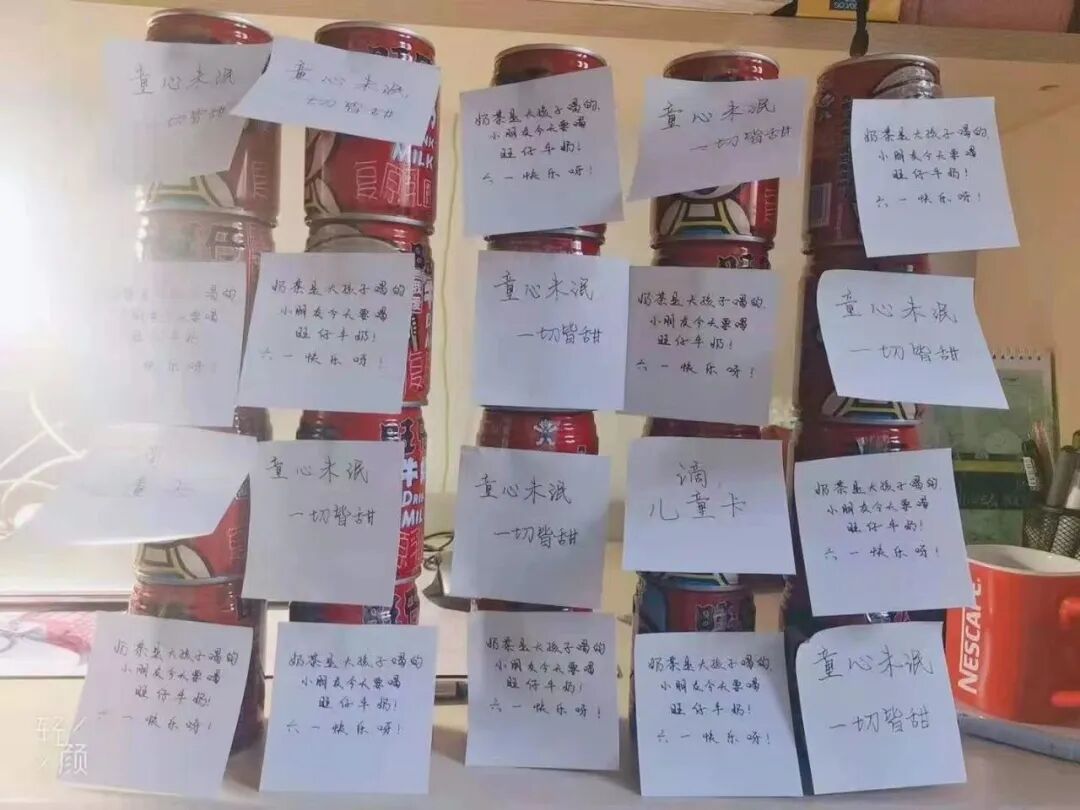 童心未泯
一切皆甜
童心未泯,
一切皆甜
奶茶是大孩子喝的,
小朋友今天要喝
旺仔牛奶!
六一快乐呀!
童心未泯
一切皆甜
奶茶是大孩子喝的,
小朋友今天要喝
旺仔牛奶!
六一快乐呀!
喝的,
快乐呀!
奶茶是大孩子喝的,
小朋友今天要喝
旺仔牛奶!
六一快乐呀!
童心未泯,
一切皆甜
奶茶是大孩子喝的,
小朋友今天要喝
旺仔牛奶!
六一快乐呀!
童心未泯
一切皆甜
童心未泯
一切皆甜
童心未泯
一切皆甜
滴,
儿童卡
奶茶是大孩子喝的,
小朋友今天要喝
旺仔牛奶!
六一快乐呀!
奶茶是大孩子喝的
小朋友今天要喝
旺仔牛奶!
六一快乐呀!
奶茶是大孩子喝的
小朋友今天要喝
旺仔牛奶!
六一快乐呀!
奶茶是大孩子喝的
小朋友今天要喝
旺仔牛奶!
六一快乐呀!
奶茶是大孩子喝的,
小朋友今天要喝
旺仔牛奶!
六一快乐呀!
童心未泯
一切皆甜
MILK
DRINK
NESCAFE
轻
颜